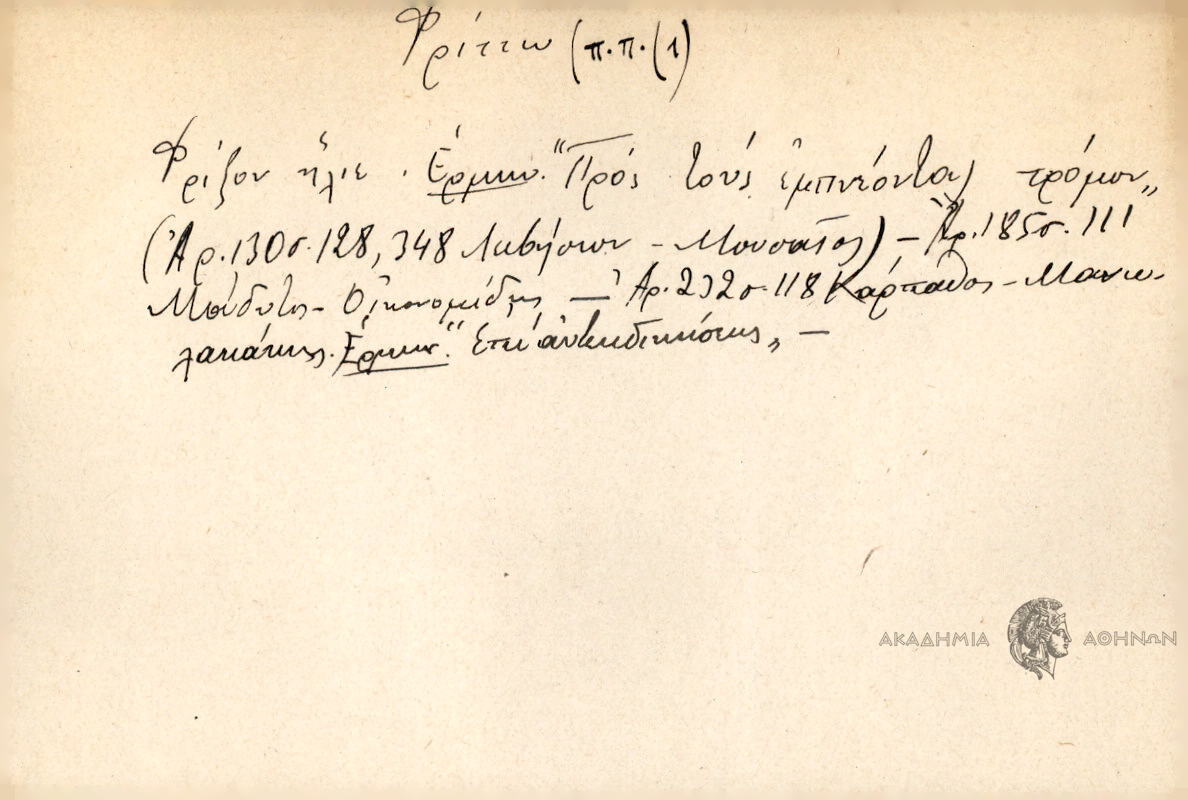 Φρίττω (π.π.(1)
Φρίξον ἥλιε. Ἑρμην. "Πρός τούς ἐμπνέοντας τρόμον„
(Ἀρ. 130 σ. 128, 348 Λιβήσιον - Μουσαῖος) – Ἀρ. 185 σ. 111
Μάδυτος - Οἰκονομίδης — Ἀρ. 232 σ. 118 Κάρπαθος - Μανω-
λακάκης. Ἑρμην. "Ἐπί ἀντεκδικήσεως„ —
ΑΚΑΔΗΜΙΑ ΑΘΗΝΩΝ